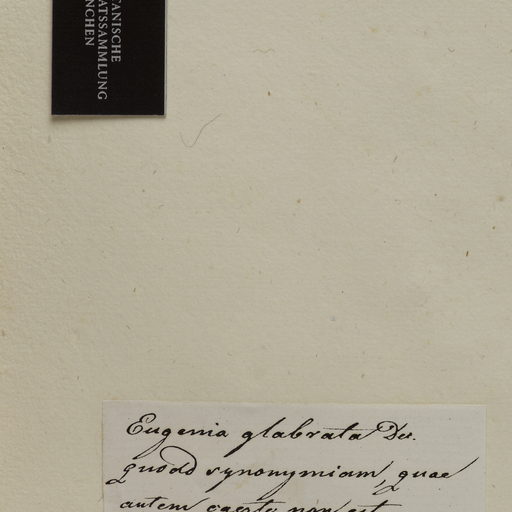 TANISCHE
ATSSAMMLUNG
NCHEN
Eugenia glabrata Dec.
quoad synonymiam, quae
autem non est